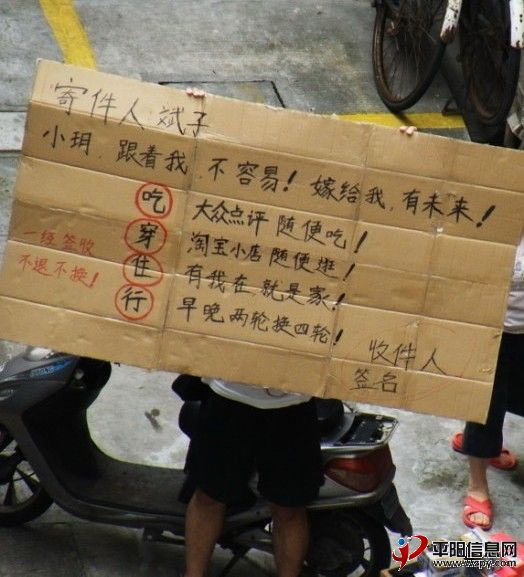 寄件人:斌子
小玥,跟着我,不容易!嫁给我,有未来!
吃 大众点评随便吃!
穿 淘宝小店随便逛!
住 有我在,就是家!
行 早晚两轮换四轮!
一经签收
不退不换!
收件人
签名
平阳信息网
www.zxpy.com